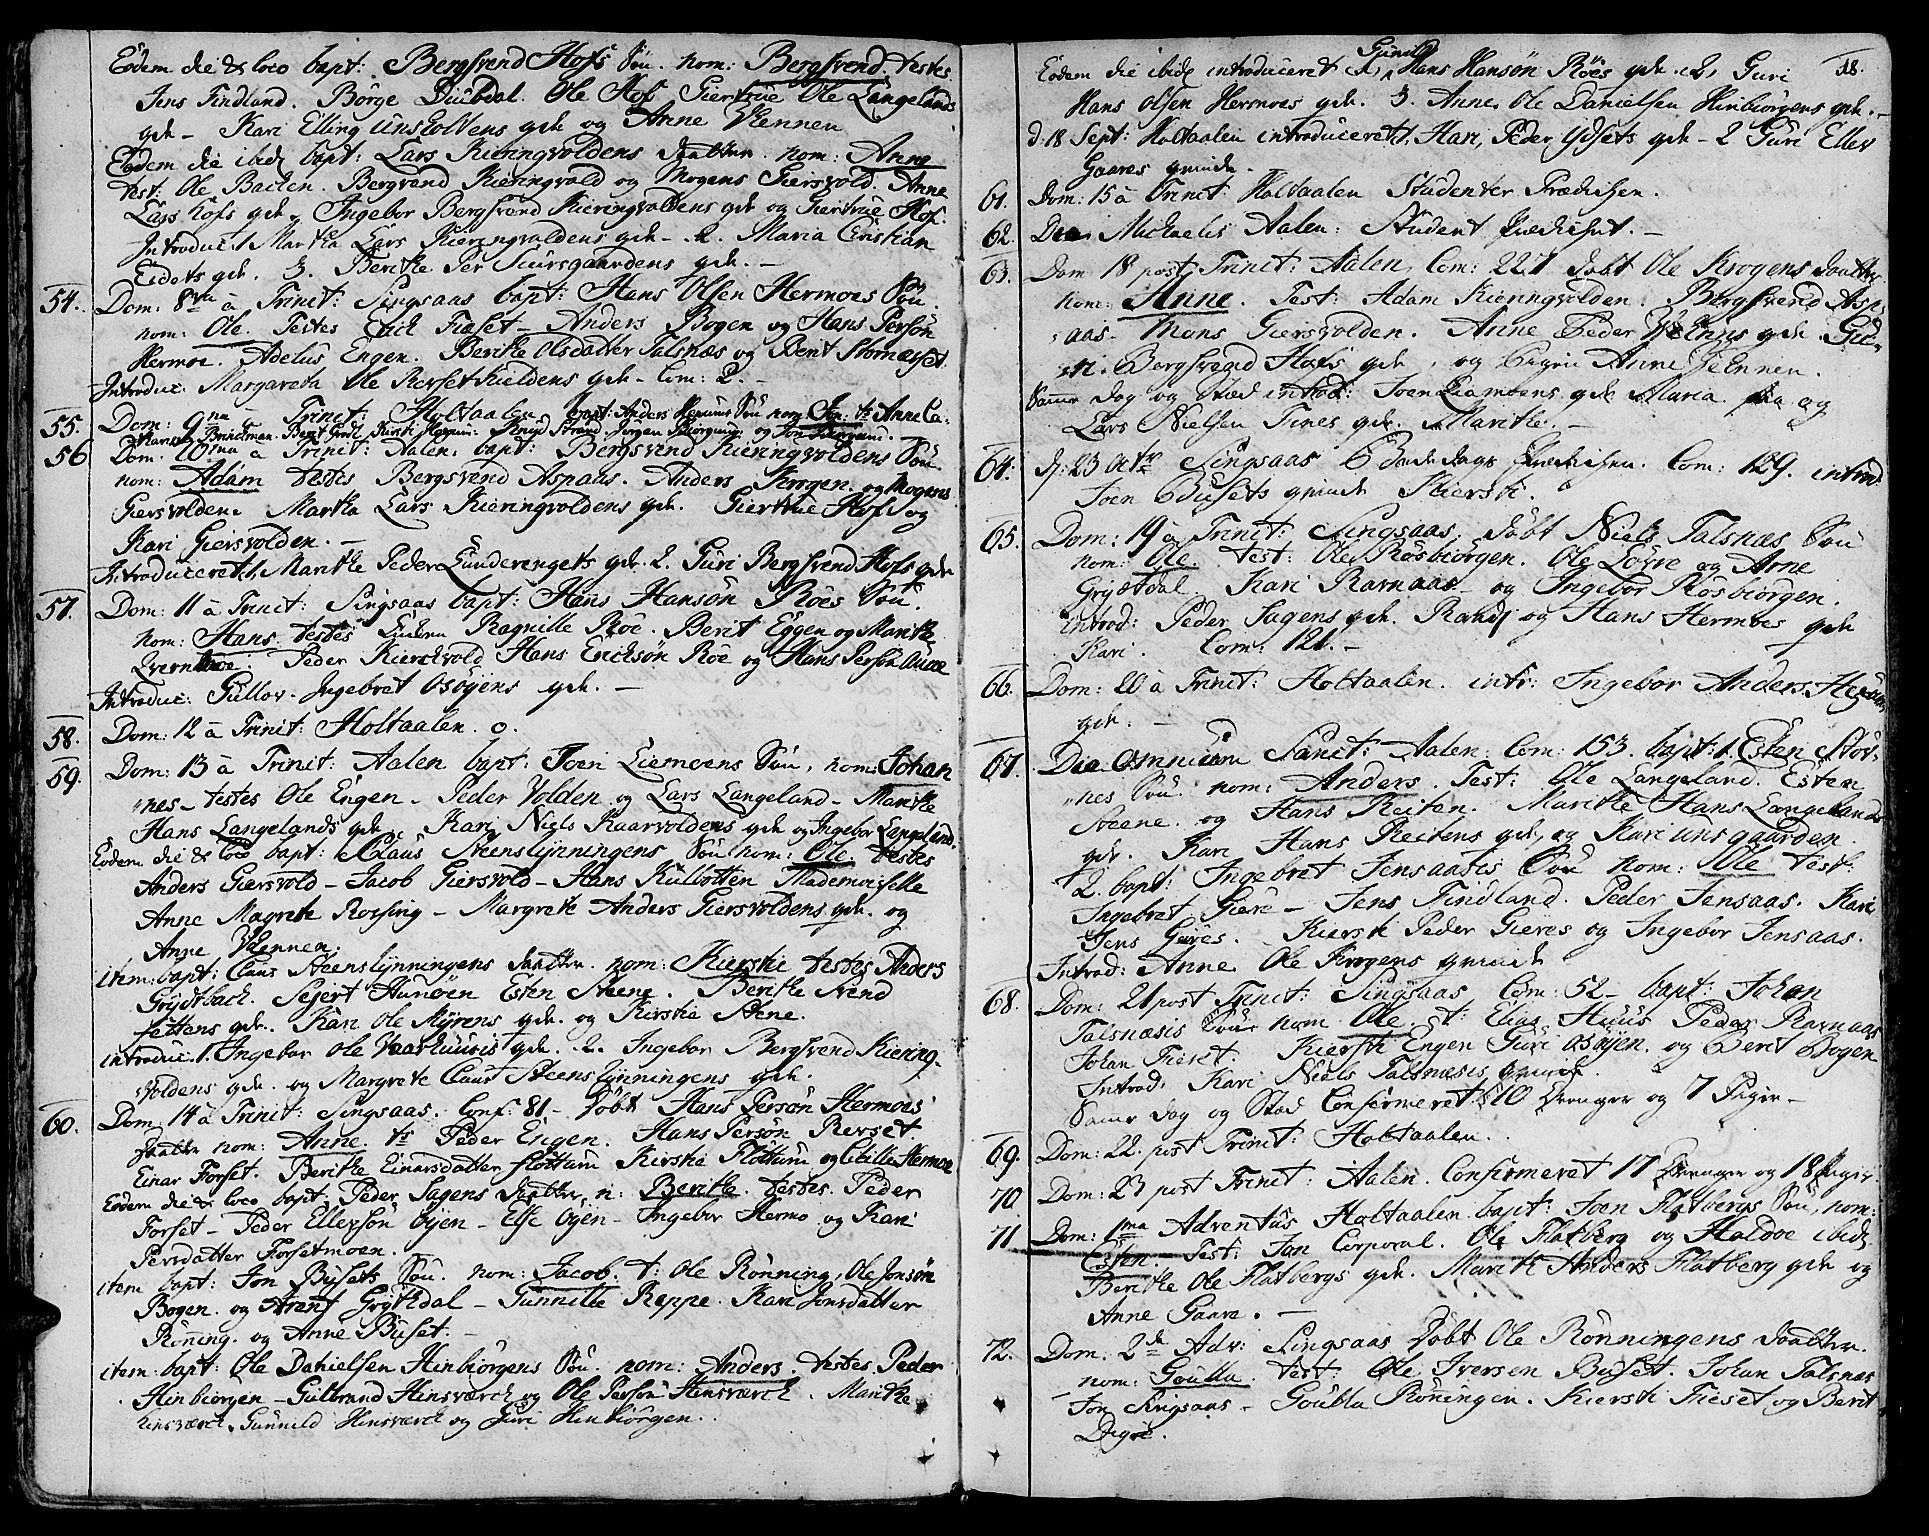 Eodem die & loco bapt: Bergsvend Hofs Sön. nom: Bergsvend. testes
Jens Findland. Börge Diubdal. Ole Hof Giertrue Ole Langelands
gdk – Kari Elling Unsholtens gdk og Anne Vennen
Eodem die ibid bapt: Lars Kieringvoldens daatter. nom: Anne
test: Ole Backen. Bergsvend Kieringvold og Mogens Giersvold. Anne
Lars Hofs gdk, Ingebor Bergsvend Kieringvoldens gdk og Giertrue Hof.
Introduc: 1 Martha Lars Kieringvoldens gdk – 2. Maria Cristian
Eidets gdk. 3. Berithe Per gaardens gdk. –
54. Dom: 8va à Trinit: Singsaas bapt: Hans Olsen Hermoes Sön
nom: Ole. Testes Erick Fieset – Anders Bogen og Hans Persön
Hermoe. Adelus Engen. Berithe Olsdatter Talsnæs og Berit Stornesset.
Introduc: Margareta Ole Kieldens gdk – Com: 2. –
55. Dom: 9na – Trinit: Holtaalen bapt: Anders Sön nom: Jon: ts Anne Ca-
Brinchman. Berit Kirsti Knud Strand. Jörgen og Jon
56 Dom: 10ma à Trinit: Aalen. bapt: Bergsvend Kieringvoldens Sön
nom: Adam testes Bergsvend Aspaas. Anders Krogen. og Mogens
Giersvolden. Martha Lars Kieringvoldens gdk. Giertrue Hof og
Kari Giersvolden. –
Introduceret 1. Marithe Peder Lunderengets gdk. 2. Guri Bergsvend Hofs gdk
57. Dom: 11 à Trinit: Singsaas bapt: Hans Hansön Röes Sön.
nom: Hans testes Ragnille Roe. Berit Eggen og Marithe
Peder Kierckvold Hans Ericksön Roe og Hans Persön
Introduc: Gullov. Ingebret Osöyens gdk. –
58. Dom: 12 à Trinit: Holtaalen. o.
59. Dom: 13 à Trinit: Aalen bapt: Joen Liemoens Sön, nom: Johan
nes – testes Ole Engen – Peder Volden og Lars Langeland – Marithe
Hans Langelands gdk – Kari Niels Kaarvoldens gdk og Ingebor Langeland.
Eodem die & loco bapt: Claus Steenslynningens Sön nom: Ole testes
Anders Giersvold – Jacob Giersvold – Hans Kulvotten Mademoiselle
Anne Magrete Rossing – Margrete Anders Giersvoldens gdk. og
Anne Vennen.
item: bapt: Claus Steenslynningens daatter. nom: Kierstie testes Anders
Grydtbach. Sejert Aunöen Esten Steene. Berithe Svend
settens gdk. Kari Ole Myrens gdk. og Kirstie Stene.
introduc: 1. Ingebor Ole Vaarhuusis gdk. 2. Ingebor Bergsvend Kiering-
voldens gdk. og Margrete Claus Steenslynningens gdk.
60. Dom 14 à Trinit: Singsaas. Conf: 81 – Döbt Hans Persön Hermoes
daatter nom: Anne. ts Peder Engen. Hans Persön Reitset.
Einar Forset. Berithe Einarsdatter Flottum Kirstie Flottum og Cicille Hermoe
Eodem die & loco bapt: Peder Sagens daatter, n: Berithe. testes. Peder
Forset – Peder Ellefsön Öyen – Else Öyen – Ingebor Hermo og Kari
Persdatter Forsetmoen.
item bapt: Jon Busets Sön. nom: Jacob. t: Ole Rönning, Ole Jonsön
Bogen. og Arent Gröttdal – Gunnille Reppe. Kari Jonsdatter
Röning. og Anne Buset. –
item: bapt: Ole Danielsen Hinbiörgens Sön. nom: Anders. testes Peder
Hinbiörgen – Gulbrand Hinsværck og Ole Persön Hinsværck. Marithe
hinsværck. Gunnild Hinsværck og Guri Hinbiörgen.
18.
Eodem die ibid introduceret 1, Gunild Hans Hansön Röes gdk. 2, Guri
Hans Olsen Hermoes gdk. 3. Anne, Ole Danielsen Hinbiörgens gdk. –
d. 18 Sept: Holtaalen introduceret 1, Mari, Peder Ydsets gdk – 2 Guri Ellev
Gaares qvinde.
61. Dom: 15 à Trinit: Holtaalen Studenter Prædichen.
62. Die Michaelis Aalen: Student Prædichet. –
63. Dom 18 post Trinit: Aalen, Com: 227 döbt Ole Krogens daatter
nom: Anne. Test: Adam Kieringvolden. Bergsvend Asp,
aas – Mons Giersvolden. Anne Peder gdk. Gu-
ri Bergsvend Hofs gdk, og Sigri Anne Vennen.
Samme dag og Stæd introd: Joen Liamoens gdk Maria. og
Lars Nielsen Tines gdk. Marithe. –
64. d: 23 Octbr Singsaas Bededags Prædichen. Com: 129. introd:
Joen Busets qvinde Kiersti.
65. Dom: 19 à Trinit: Singsaas, döbt Niels Talsnæs Sön
nom: Ole. test: Ole Rösbiörgen. Ole Löwe og Arne
Gryttdal Kari Ramaas og Ingebor Rösbiörgen.
introd: Peder Sagens gdk. Randj og Hans Hermoes gdk
Kari. Com: 121. –
66. Dom: 20 à Trinit: Holtaalen. intr: Ingebor Anders
gdk. –
67. Die Omnium Sanct: Aalen. Com: 153. bapt: 1. Esten Stöv-
nes Sön. nom: Anders. Test: Ole Langeland. Esten
Steene. og Hans Reiten. Marithe Hans Langelands
gdk. Kari Hans Reitens gdk, og Kari Unsgaarden.
2. bapt: Ingebret Jensaasis Sön nom: Ole test:
Ingebret Giere – Jens Findland. Peder Jensaas. Kari
Jens Gieres. Kiersti Peder Gieres og Ingebor Jensaas.
Introd: Anne Ole Krogens qvinde
68. Dom: 21 post Trinit: Singsaas Com: 52 – bapt: Johan
Talsnæsis Sön nom Ole. t: Elias Huus Peder Ramaas
Johan Fieset. Kiersti Engen Guri Osöyen. og Berit Bogen
Introd: Kari Niels Talsnæsis qvinde.
Samme dag og Stæd Confirmeret 10 Drenger og 7 Piger –
69. Dom: 22. post Trinit: Holtaalen.
70. Dom: 23 post Trinit: Aalen. Confirmeret 17 Drenger og 18 Piger.
71 Dom: 1ma Adventus Holtaalen. bapt: Joen Flatbergs Sön, nom:
Esten. Test: Jon Corporal. Ole Flatberg og Haldoe ibid
Berithe Ole Flatbergs gdk. Marith Anders Flatberg gdk og
Anne Gaare. –
72. Dom: 2de Adv: Singsaas Döbt Ole Rönningens daatter.
nom: Goulla. test: Ole Iversen Buset. Johan Talsnæs
Jon Singsaas – Goulla Röningen. Kiersti Fieset og Berit
Digre.